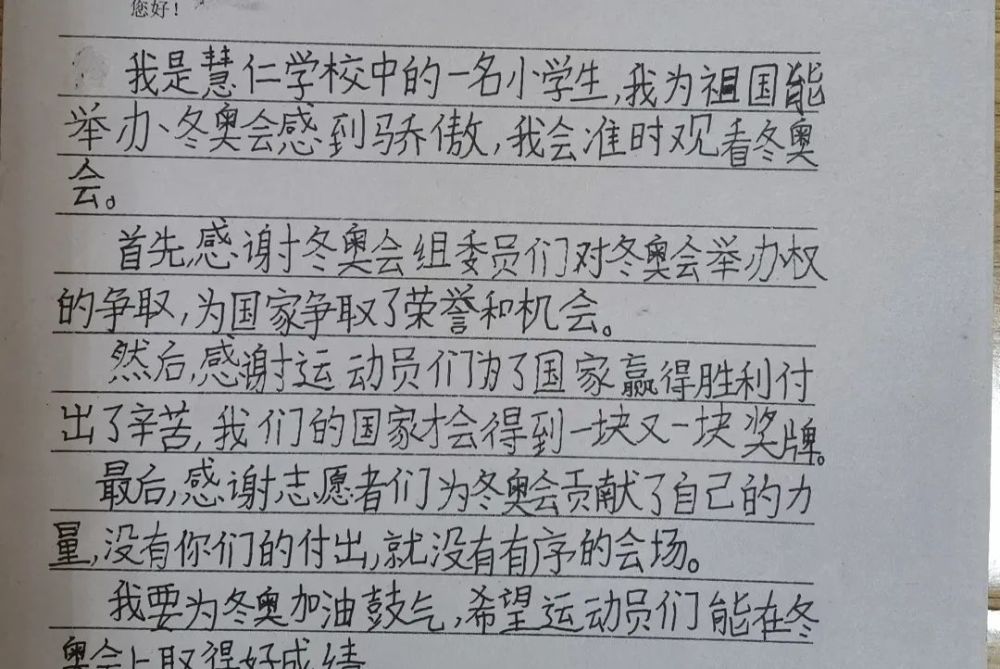 您好！
我是慧仁学校中的一名小学生，我为祖国能
举办、冬奥会感到骄傲，我会准时观看冬奥
会。
首先，感谢冬奥会组委员们对冬奥会举办权
的争取，为国家争取了荣誉和机会。
然后，感谢运动员们为了国家赢得胜利付
出了辛苦，我们的国家才会得到一块又一块奖牌。
最后，感谢志愿者们为冬奥会贡献了自己的力
量，没有你们的付出，就没有有序的会场。
我要为冬奥加油鼓气，希望运动员们能在冬
奥会上取得好成绩